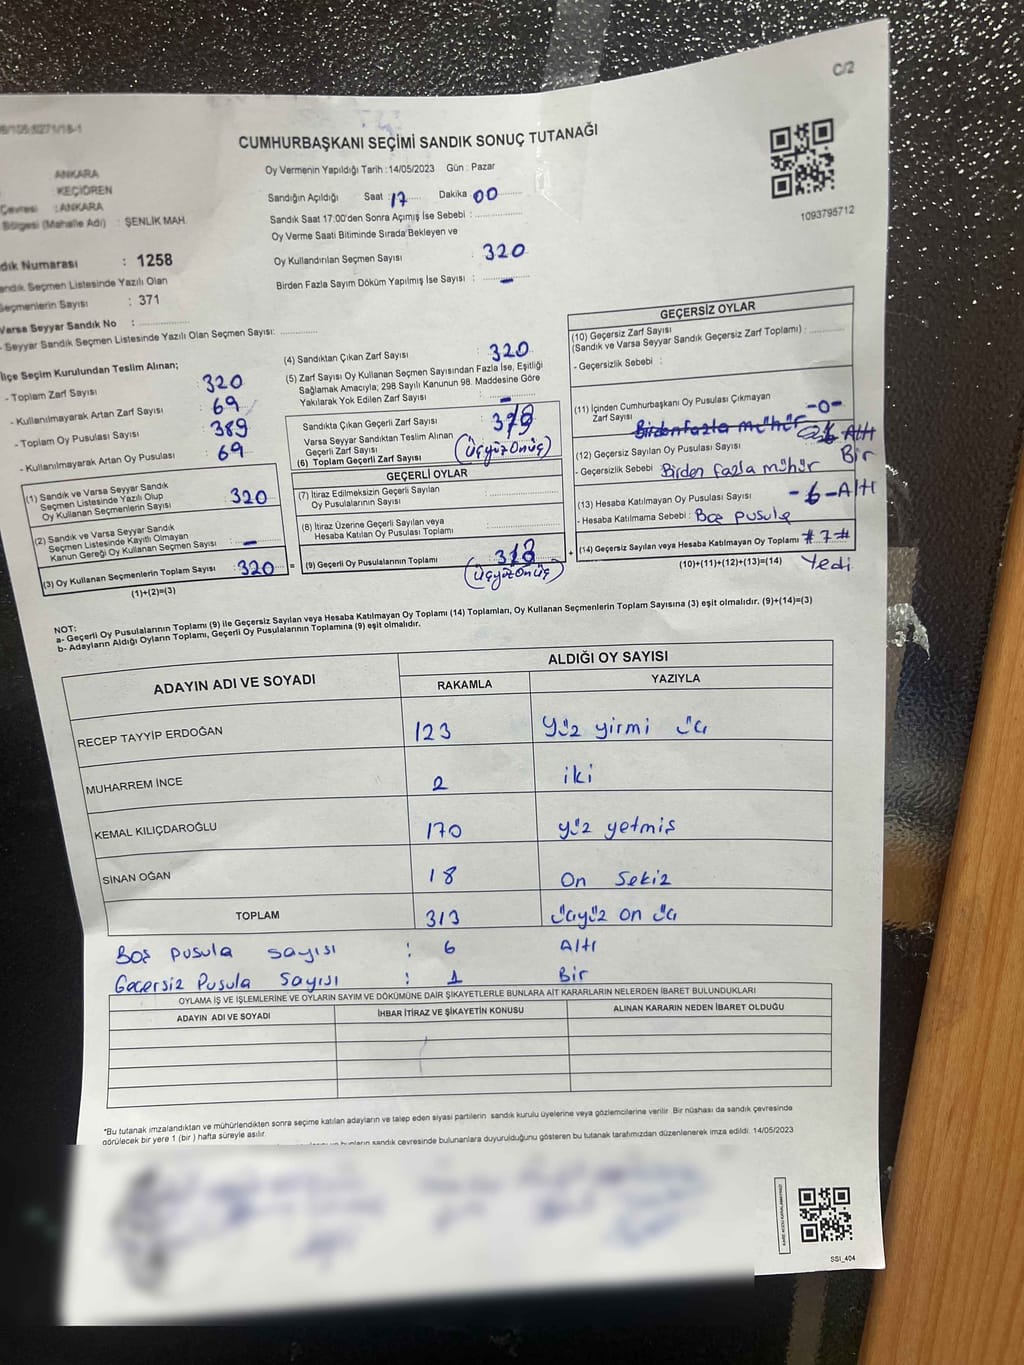 C/2
CUMHURBAŞKANI SEÇİMİ SANDIK SONUÇ TUTANAĞI
1093795712
ANKARA
KEÇİÖREN
Çevresi : ANKARA
Bölgesi (Mahalle Adı) : ŞENLİK MAH.
Numarası : 1258
Sandık Seçmen Listesinde Yazılı Olan
Seçmenlerin Sayısı : 371
Varsa Seyyar Sandık No :
- Seyyar Sandık Seçmen Listesinde Yazılı Olan Seçmen Sayısı:
Oy Vermenin Yapıldığı Tarih : 14/05/2023 Gün : Pazar
Sandığın Açıldığı Saat : 17 Dakika 00
Sandık Saat 17:00'den Sonra Açımış İse Sebebi :
Oy Verme Saati Bitiminde Sırada Bekleyen ve
Oy Kullandırılan Seçmen Sayısı 320
Birden Fazla Sayım Döküm Yapılmış İse Sayısı : -
İlçe Seçim Kurulundan Teslim Alınan;
- Toplam Zarf Sayısı : 320
- Kullanılmayarak Artan Zarf Sayısı : 69
- Toplam Oy Pusulası Sayısı : 389
- Kullanılmayarak Artan Oy Pusulası : 69
(1) Sandık ve Varsa Seyyar Sandık
Seçmen Listesinde Yazılı Olup
Oy Kullanan Seçmenlerin Sayısı : 320
(2) Sandık ve Varsa Seyyar Sandık
Seçmen Listesinde Kayıtlı Olmayan
Kanun Gereği Oy Kullanan Seçmen Sayısı : -
(3) Oy Kullanan Seçmenlerin Toplam Sayısı : 320
(1)+(2)=(3)
(4) Sandıktan Çıkan Zarf Sayısı : 320
(5) Zarf Sayısı Oy Kullanan Seçmen Sayısından Fazla İse, Eşitliği
Sağlamak Amacıyla; 298 Sayılı Kanunun 98. Maddesine Göre
Yakılarak Yok Edilen Zarf Sayısı : -
Sandıkta Çıkan Geçerli Zarf Sayısı
Varsa Seyyar Sandıktan Teslim Alınan
Geçerli Zarf Sayısı
(6) Toplam Geçerli Zarf Sayısı (üçyüzonüç)
GEÇERLİ OYLAR
(7) İtiraz Edilmeksizin Geçerli Sayılan
Oy Pusulalarının Sayısı :
(8) İtiraz Üzerine Geçerli Sayılan veya
Hesaba Katılan Oy Pusulası Toplamı :
(9) Geçerli Oy Pusulalarının Toplamı : 313
(üçyüzonüç)
GEÇERSİZ OYLAR
(10) Geçersiz Zarf Sayısı
(Sandık ve Varsa Seyyar Sandık Geçersiz Zarf Toplamı) :
- Geçersizlik Sebebi :
(11) İçinden Cumhurbaşkanı Oy Pusulası Çıkmayan
Zarf Sayısı -0-
Birden fazla mühür Altı
(12) Geçersiz Sayılan Oy Pusulası Sayısı Bir
- Geçersizlik Sebebi Birden fazla mühür
(13) Hesaba Katılmayan Oy Pusulası Sayısı -6-Altı
- Hesaba Katılmama Sebebi : Boş pusula
(14) Geçersiz Sayılan veya Hesaba Katılmayan Oy Toplamı #7#
(10)+(11)+(12)+(13)=(14) Yedi
NOT:
a- Geçerli Oy Pusulalarının Toplamı (9) ile Geçersiz Sayılan veya Hesaba Katılmayan Oy Toplamı (14) Toplamları, Oy Kullanan Seçmenlerin Toplam Sayısına (3) eşit olmalıdır. (9)+(14)=(3)
b- Adayların Aldığı Oyların Toplamı, Geçerli Oy Pusulalarının Toplamına (9) eşit olmalıdır.
ADAYIN ADI VE SOYADI ALDIĞI OY SAYISI
RAKAMLA YAZIYLA
RECEP TAYYİP ERDOĞAN 123 Yüz yirmi üç
MUHARREM İNCE 2 iki
KEMAL KILIÇDAROĞLU 170 yüz yetmiş
SİNAN OĞAN 18 On Sekiz
TOPLAM 313 üçyüz on üç
Boş pusula sayısı : 6 Altı
Geçersiz Pusula Sayısı : 1 Bir
OYLAMA İŞ VE İŞLEMLERİNE VE OYLARIN SAYIM VE DÖKÜMÜNE DAİR ŞİKAYETLERLE BUNLARA AİT KARARLARIN NELERDEN İBARET BULUNDUKLARI
ADAYIN ADI VE SOYADI İHBAR İTİRAZ VE ŞİKAYETİN KONUSU ALINAN KARARIN NEDEN İBARET OLDUĞU
*Bu tutanak imzalandıktan ve mühürlendikten sonra seçime katılan adayların ve talep eden siyasi partilerin sandık kurulu üyelerine veya gözlemcilerine verilir. Bir nüshası da sandık çevresinde
görülecek bir yere 1 (bir ) hafta süreyle asılır.
sandık çevresinde bulunanlara duyurulduğunu gösteren bu tutanak tarafımızdan düzenlenerek imza edildi. 14/05/2023
SSI_404